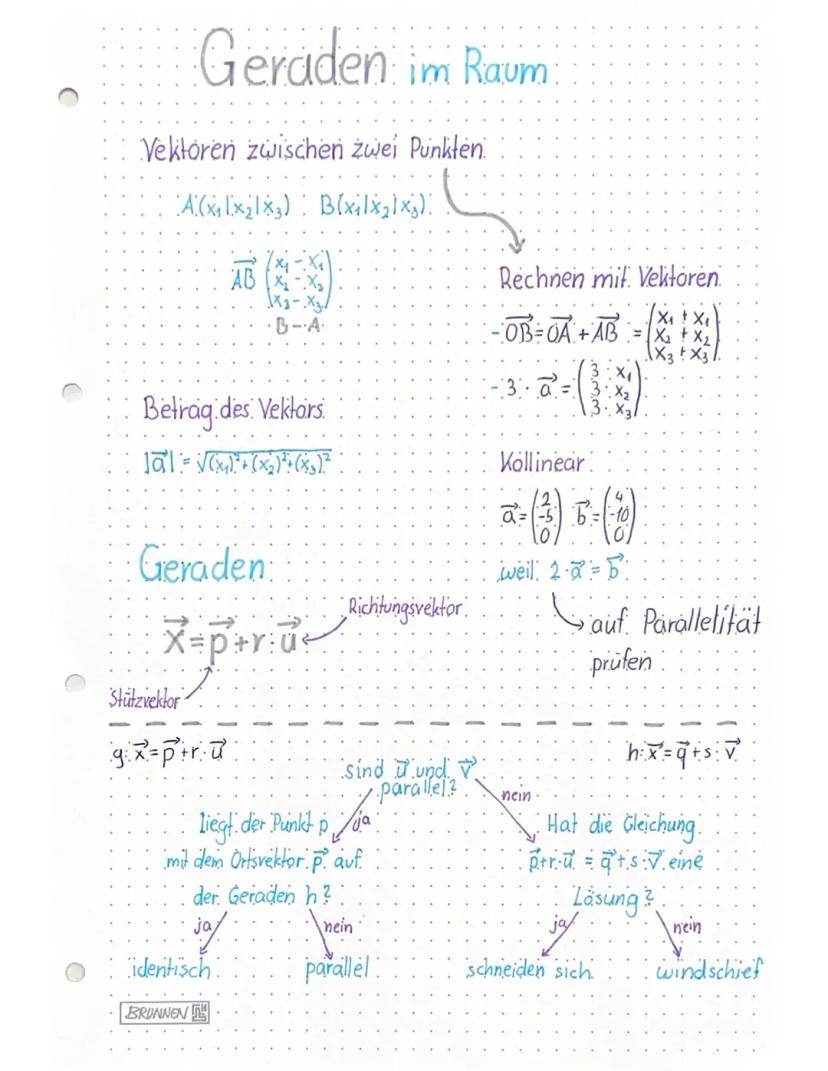 Geraden im Raum
Vektoren zwischen zwei Punkten
A(x₁|x₂|x₃) B(x₁|x₂|x₃)
AB⃗ (x₁ - x₁
x₂ - x₂
x₃ - x₃)
B - A
Rechnen mit Vektoren
- OB⃗ = OA⃗ + AB⃗ = (x₁ + x₁
x₂ + x₂
x₃ + x₃)
- 3 · a⃗ = (3 · x₁
3 · x₂
3 · x₃)
Betrag des Vektors
|a⃗| = √(x₁)²+(x₂)²+(x₃)²
Kollinear
a⃗ = (2
-5
0) b⃗ = (4
-10
0)
weil 2·a⃗ = b⃗
auf Parallelität
prüfen
Geraden
Richtungsvektor
x⃗ = p⃗ + r · u⃗
Stützvektor
g: x⃗ = p⃗ + r · u⃗
h: x⃗ = q⃗ + s · v⃗
sind u⃗ und v⃗
parallel?
ja
nein
liegt der Punkt p
mit dem Ortsvektor p⃗ auf
der Geraden h?
ja
nein
identisch
parallel
Hat die Gleichung
p⃗+r·u⃗ = q⃗+s·v⃗ eine
Lösung?
ja
nein
schneiden sich
windschief
BRUNNEN